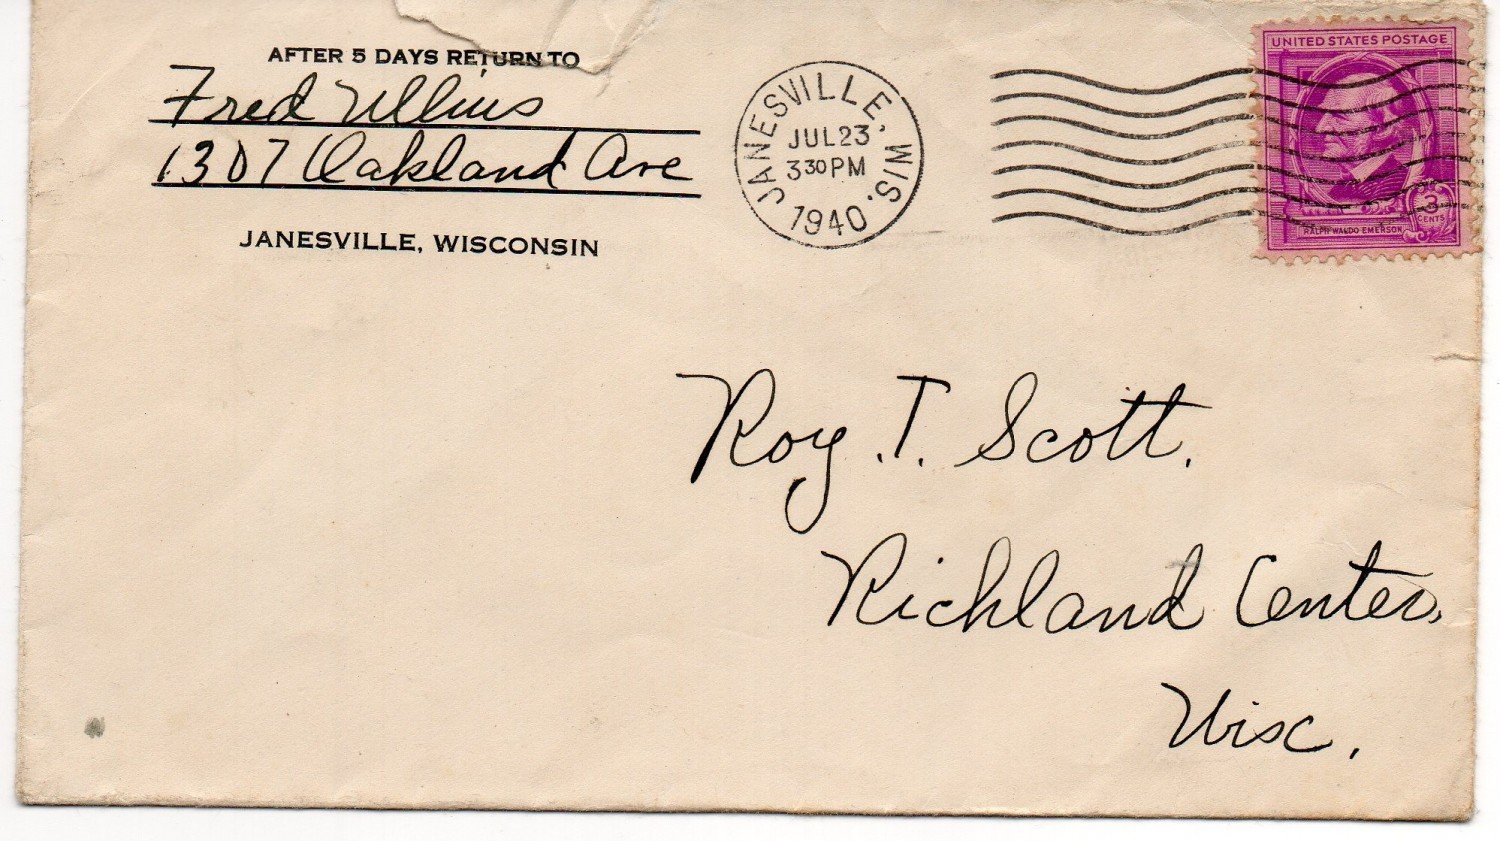 AFTER 5 DAYS RETURN TO
Fred
1307 Oakland Ave
JANESVILLE, WISCONSIN
JANESVILLE, WIS.
JUL 23
3 30 PM
1940
UNITED STATES POSTAGE
3
CENTS
RALPH WALDO EMERSON
Roy. T. Scott.
Richland Center,
Wisc.